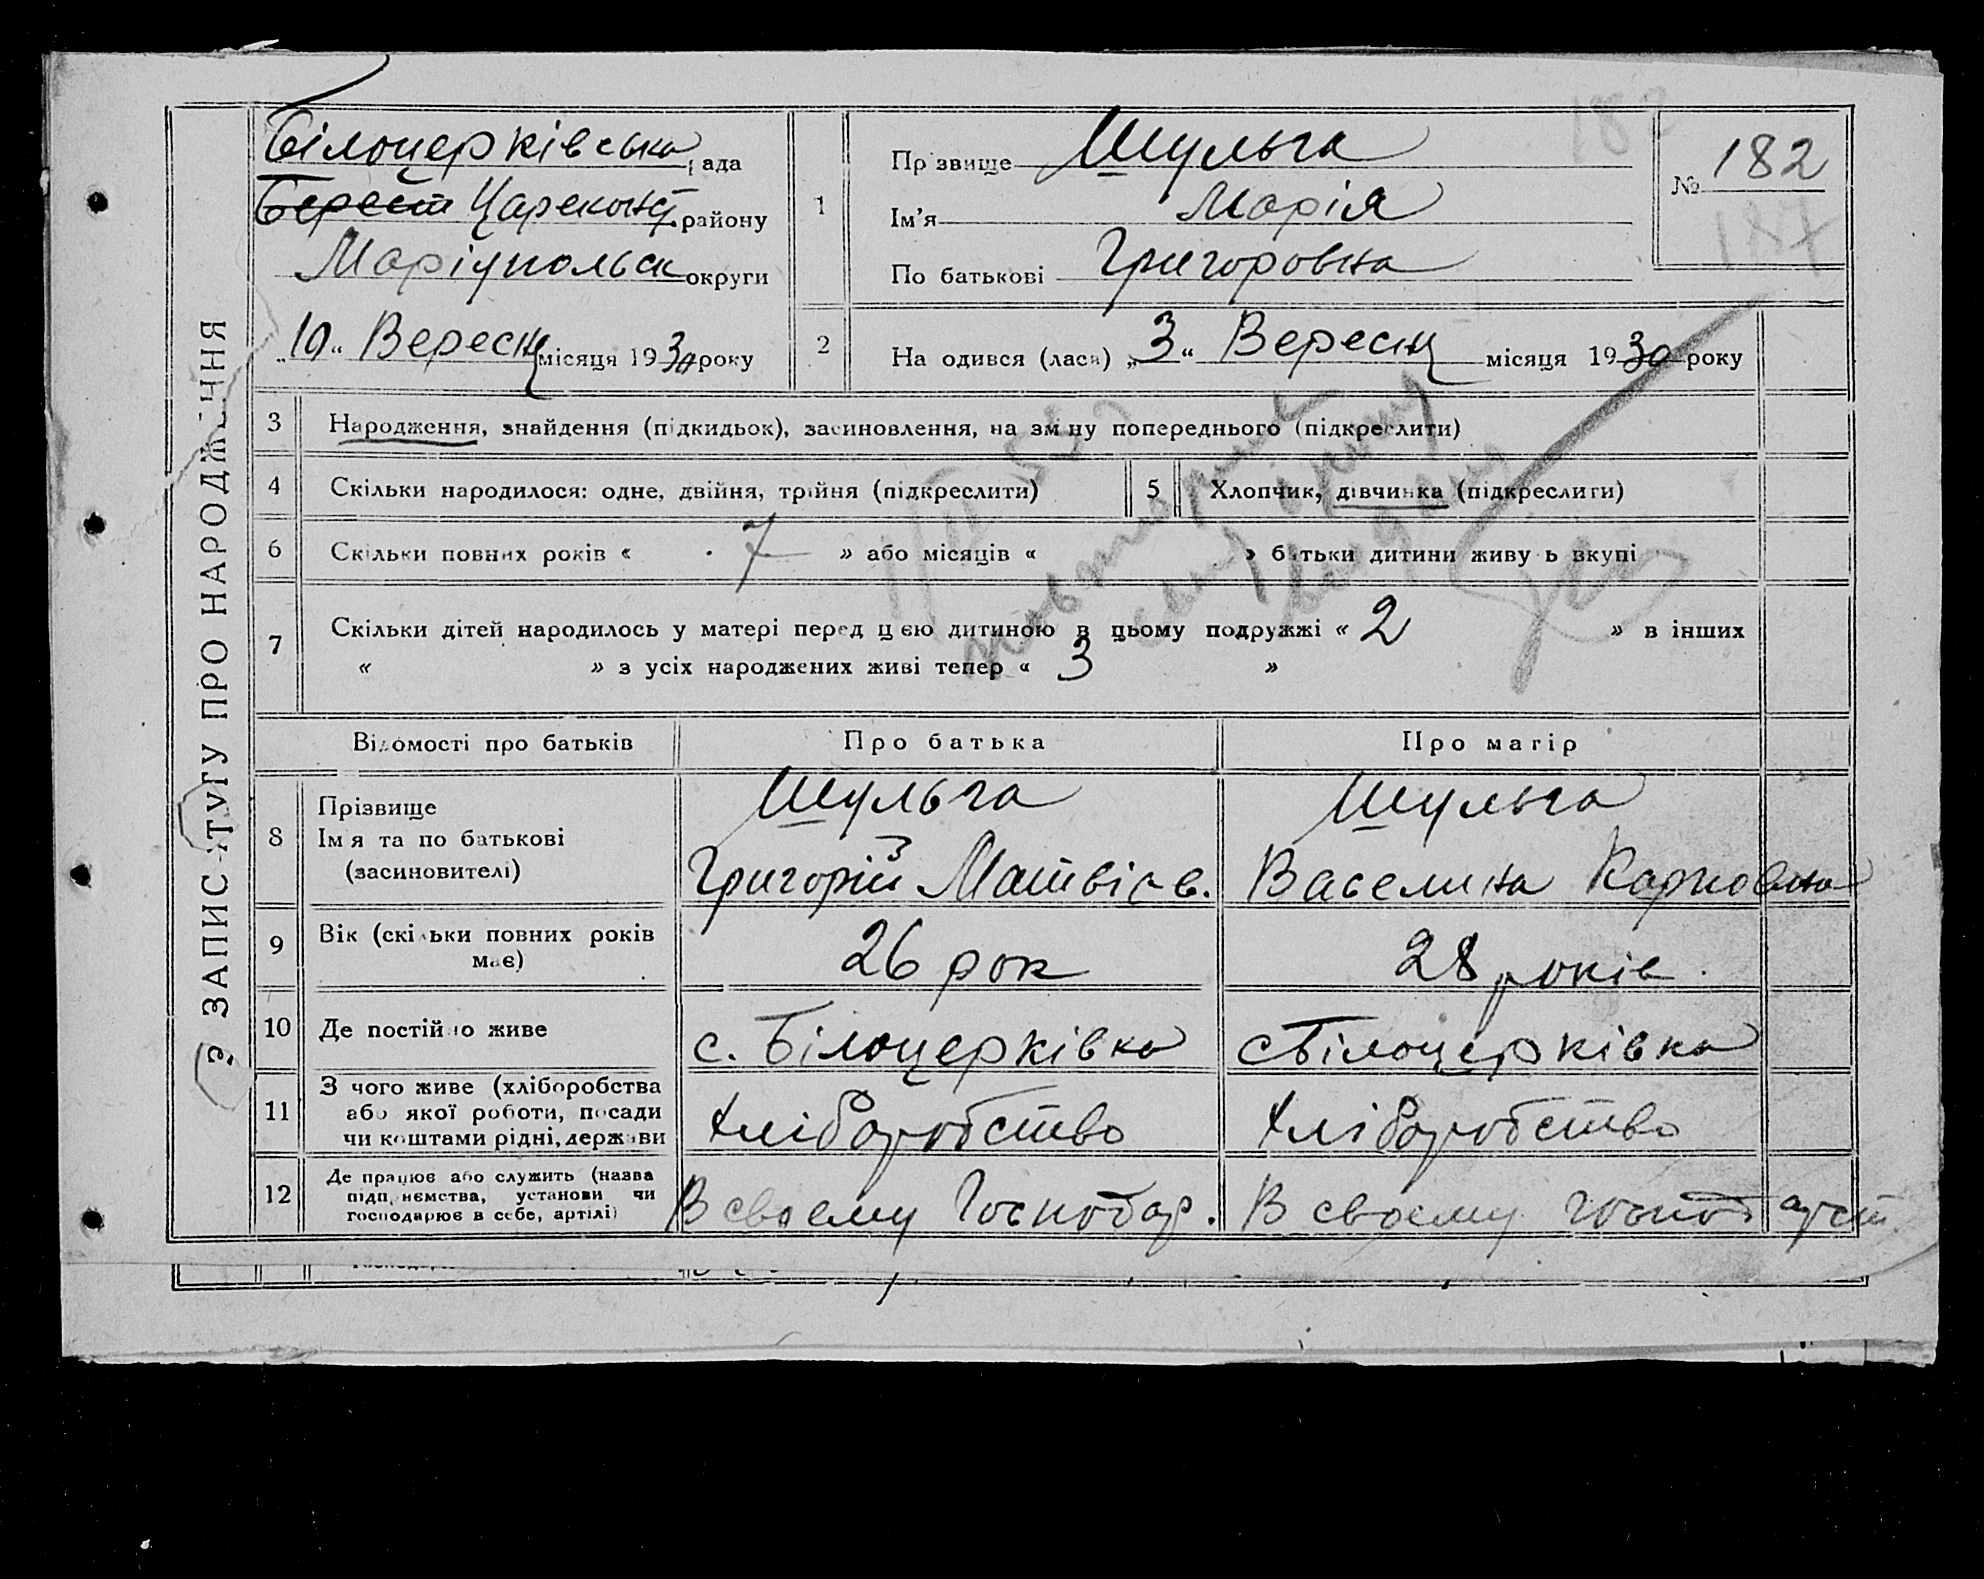 ЗАПИС АКТУ ПРО НАРОДЖЕННЯ
Білоцерківська рада
Берест Цареконст. району
Маріупольськ округи
„10“ Вересня місяця 1930 року
1
Прізвище Шульга
Ім'я Марія
По батькові Григоровна
№ 182
187
2
На одився (лася) „3“ Вересня місяця 1930 року
3 Народження, знайдення (підкидьок), засиновлення, на зміну попереднього (підкреслити)
4 Скільки народилося: одне, двійня, трійня (підкреслити)
5 Хлопчик, дівчинка (підкреслити)
6 Скільки повних років « 7 » або місяців « » батьки дитини живуть вкупі
7 Скільки дітей народилось у матері перед цією дитиною в цьому подружжі « 2 » в інших
« » з усіх народжених живі тепер « 3 »
Відомості про батьків
Про батька
Про матір
8
Прізвище
Ім'я та по батькові
(засиновителі)
Шульга
Григорій Матвієв.
Шульга
Васелина Карповна
9
Вік (скільки повних років
має)
26 рок
28 років
10 Де постійно живе
с. Білоцерківка
с Білоцерківка
11
З чого живе (хліборобства
або якої роботи, посади
чи коштами рідні, держави
Хліборобство
Хліборобство
12
Де працює або служить (назва
підприємства, установи чи
господарює в себе, артілі)
В своему Господар.
В своему господарст